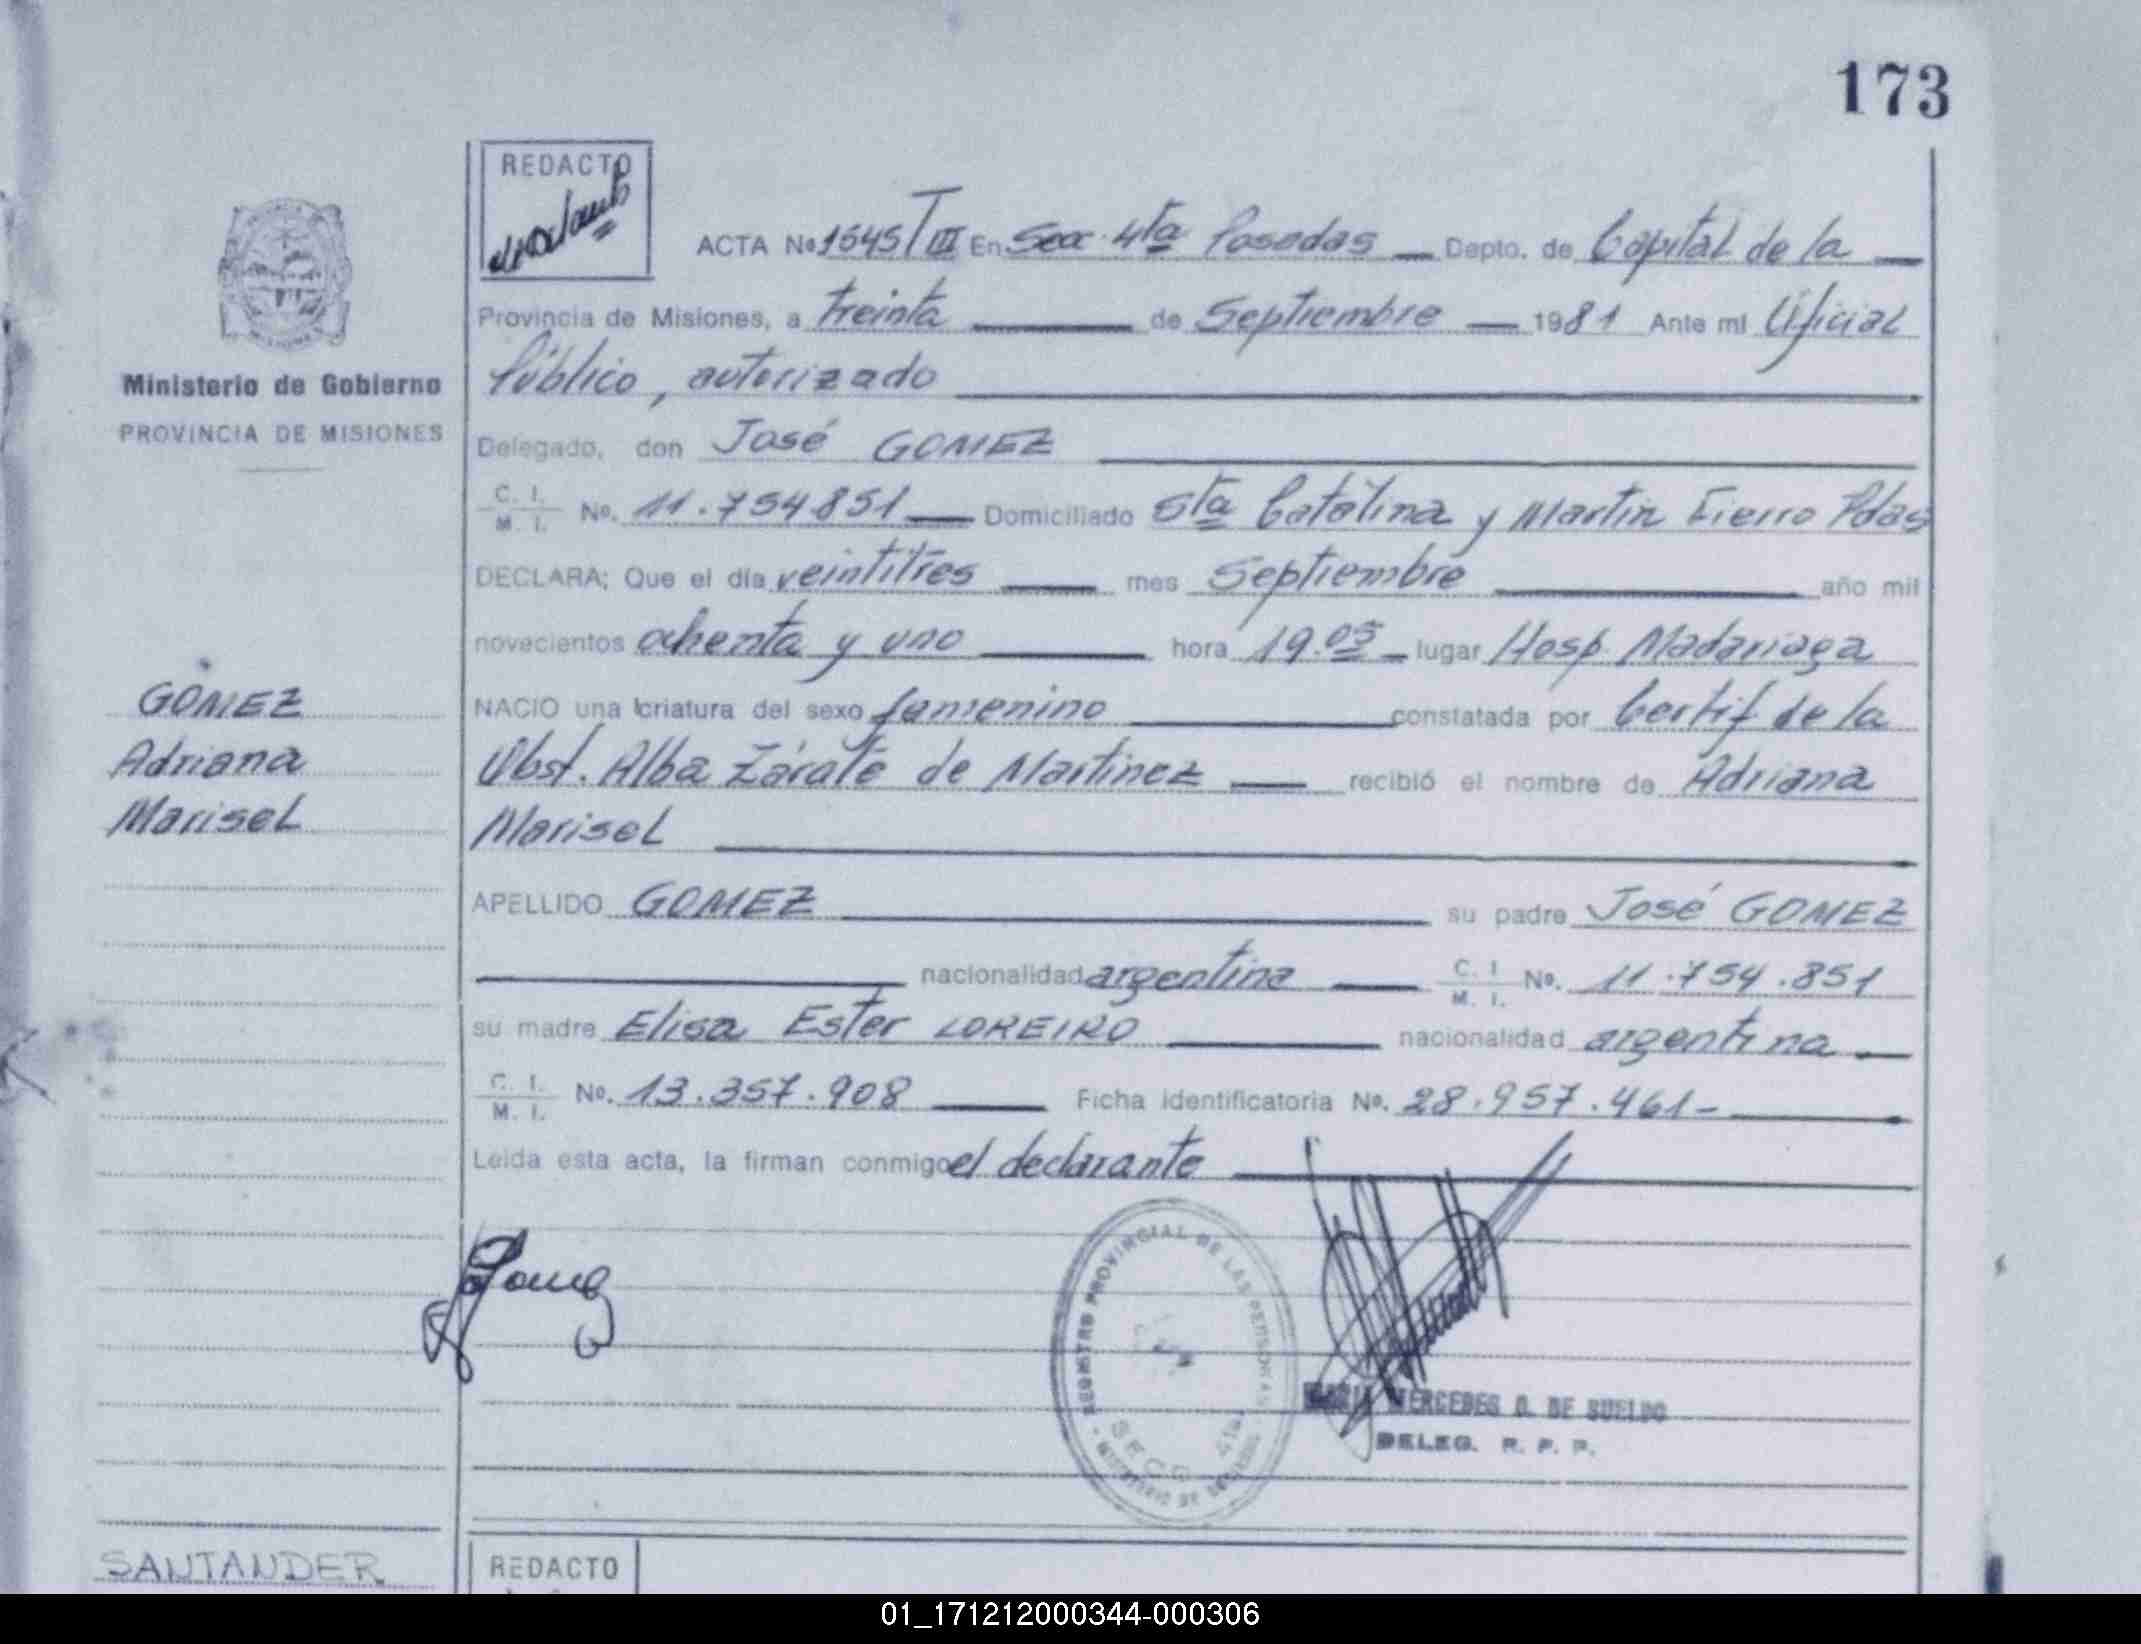 173
REDACTO
ACTA Nº 1545 T III En Secc. 4ta Posadas — Depto. de Capital de la —
Provincia de Misiones, a treinta — de Septiembre — 1981 Ante mí Oficial
Ministerio de Gobierno
Público, autorizado
PROVINCIA DE MISIONES
Delegado, don José GOMEZ
C. I.
M. I. Nº. 11.754.851 — Domiciliado Sta Catalina y Martin Fierro Pdas
DECLARA; Que el día veintitres — mes Septiembre — año mil
novecientos ochenta y uno — hora 19.05 — lugar Hosp. Madariaga
GOMEZ
NACIO una criatura del sexo femenino — constatada por Certif de la
Adriana
Obst. Alba Zárate de Martinez — recibió el nombre de Adriana
Marisel
Marisel
APELLIDO GOMEZ — su padre José GOMEZ
— nacionalidad argentina — C. I.
M. I. Nº. 11.754.851
su madre Elisa Ester LOREIRO — nacionalidad argentina —
C. I.
M. I. Nº. 13.357.908 — Ficha identificatoria Nº. 28.957.461-
Leída esta acta, la firman conmigo el declarante
REGISTRO PROVINCIAL DE LAS PERSONAS
SECC. 4ta
MARIA MERCEDES O. DE SUELDO
DELEG. R. P. P.
SANTANDER
REDACTO
01_171212000344-000306